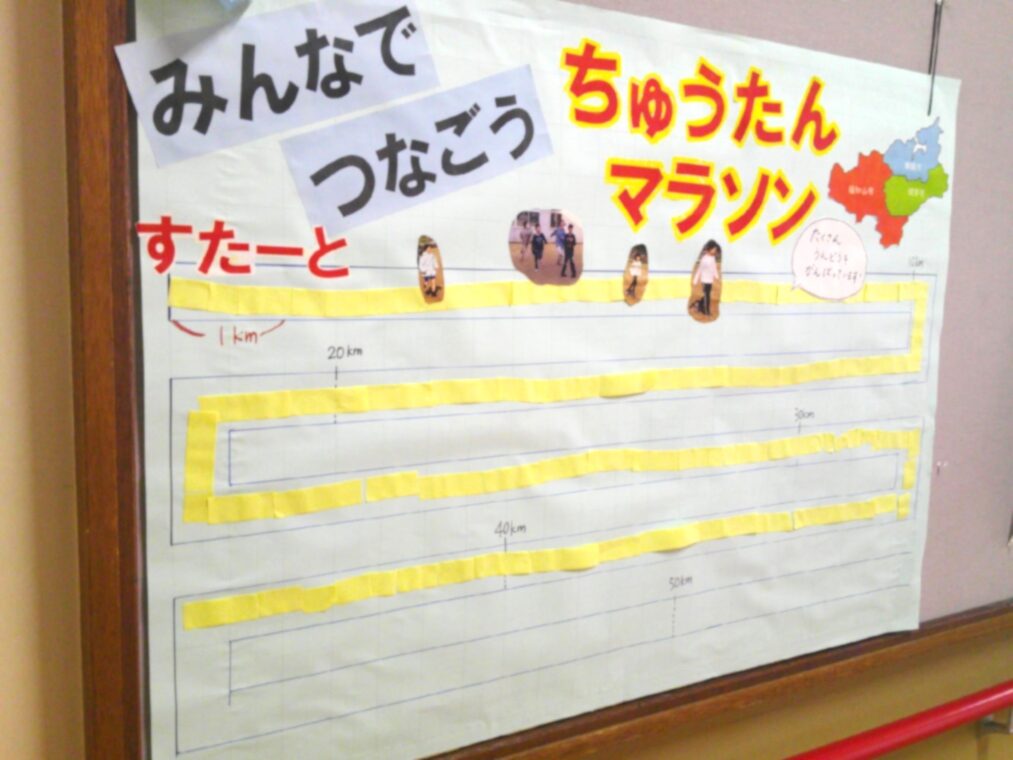 みんなで
つなごう
ちゅうたん
マラソン
すたーと
福知山市
たくさん
うんどうを
がんばっています!
10km
1km
20km
30km
40km
50km